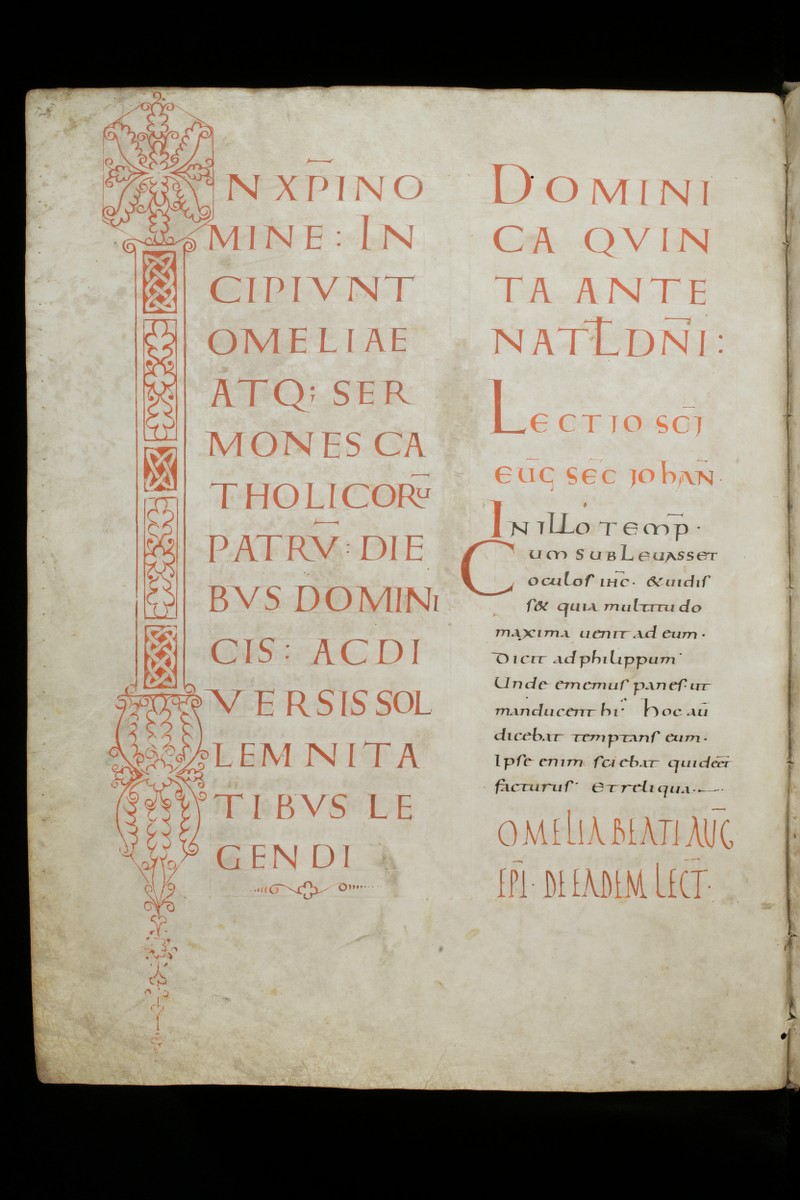 IN XP̅I NO
MINE: IN
CIPIVNT
OMELIAE
ATQ; SER
MONES CA
THOLICORU̅
PATRV̅: DIE
BVS DOMINI
CIS: AC DI
VERSIS SOL
LEMNITA
TIBVS LE
GENDI
DOMINI
CA QVIN
TA ANTE
NATL̅ DN̅I:
LECTIO SC̅I
EUG̅ SEC̅ IOHAN̅
IN ILLO TEMP̅·
CUM SUBLEUASSET
oculos ihc̅· & uidis
s& quia multitudo
maxima uenit ad eum·
Dicit ad philippum·
Unde ememus panes ut
manducent hi· hoc au̅
dicebat temptans eum·
Ipse enim sciebat quid eet̅
facturus· Et reliqua·
OMELIA BEATI AUG̅
EP̅I· DE EADEM LECT̅·